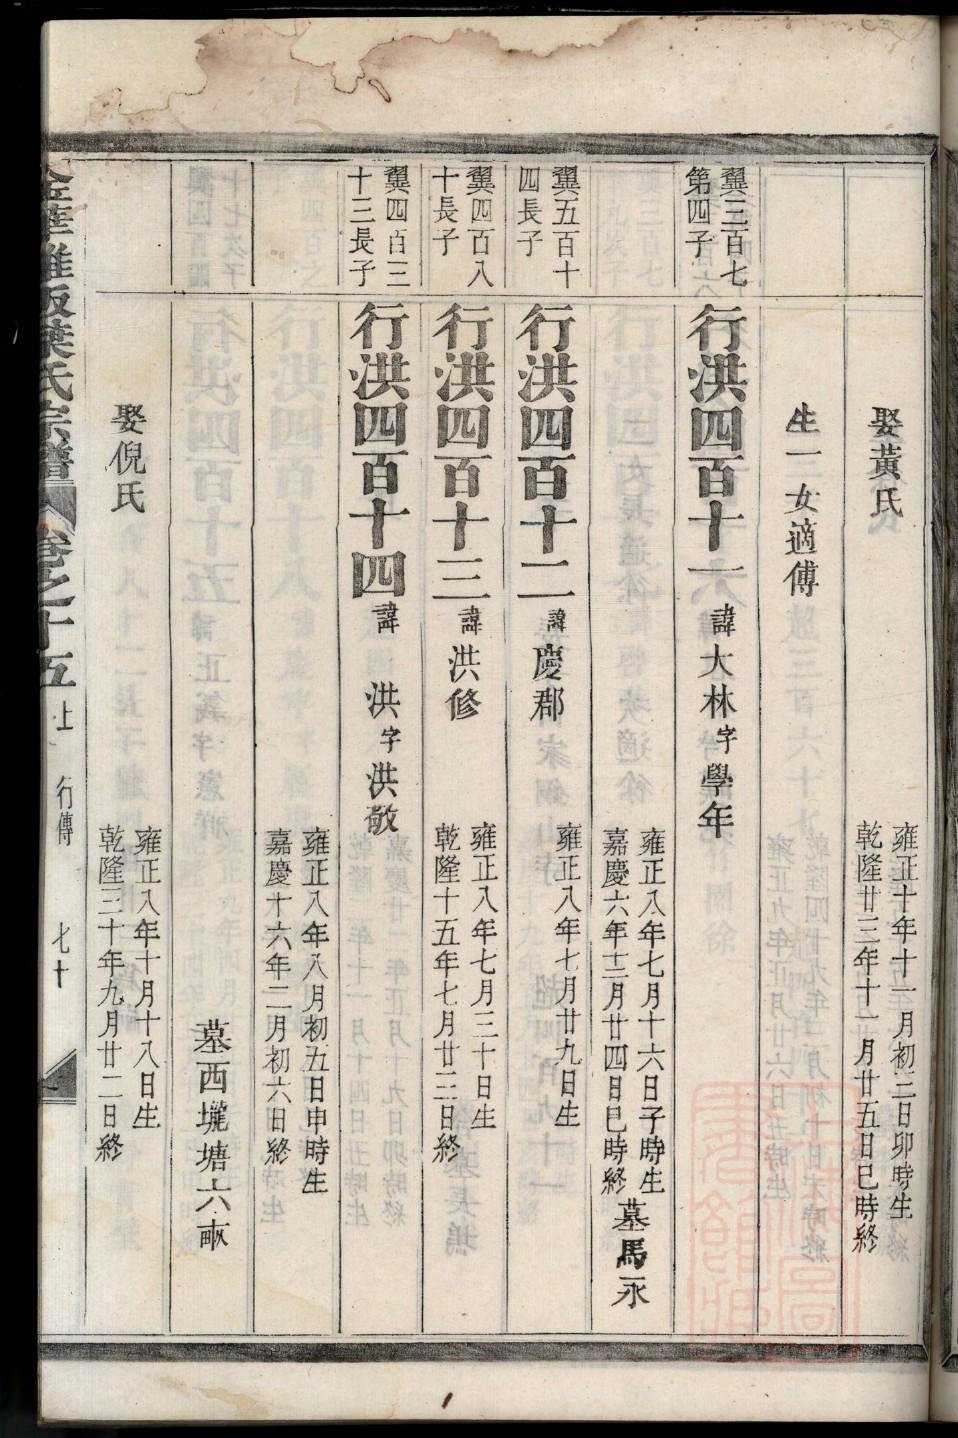 娶黃氏
雍正十年十一月初三日卯時生
乾隆廿三年十一月廿五日巳時終
生一女適傅
翼三百七
第四子
行洪四百十一
諱大林字學年
雍正八年七月十六日子時生
嘉慶六年十二月廿四日巳時終
墓馬永
翼五百十
四長子
行洪四百十二
諱慶郡
雍正八年七月廿九日生
翼四百八
十長子
行洪四百十三
諱洪修
雍正八年七月三十日生
乾隆十五年七月廿三日終
翼四百三
十三長子
行洪四百十四
諱洪字洪敬
雍正八年八月初五日申時生
嘉慶十六年二月初六日終
墓西壠塘六畝
娶倪氏
雍正八年十月十八日生
乾隆三十年九月廿二日終
金華雅畈葉氏宗譜
卷之十五上 行傳 七十